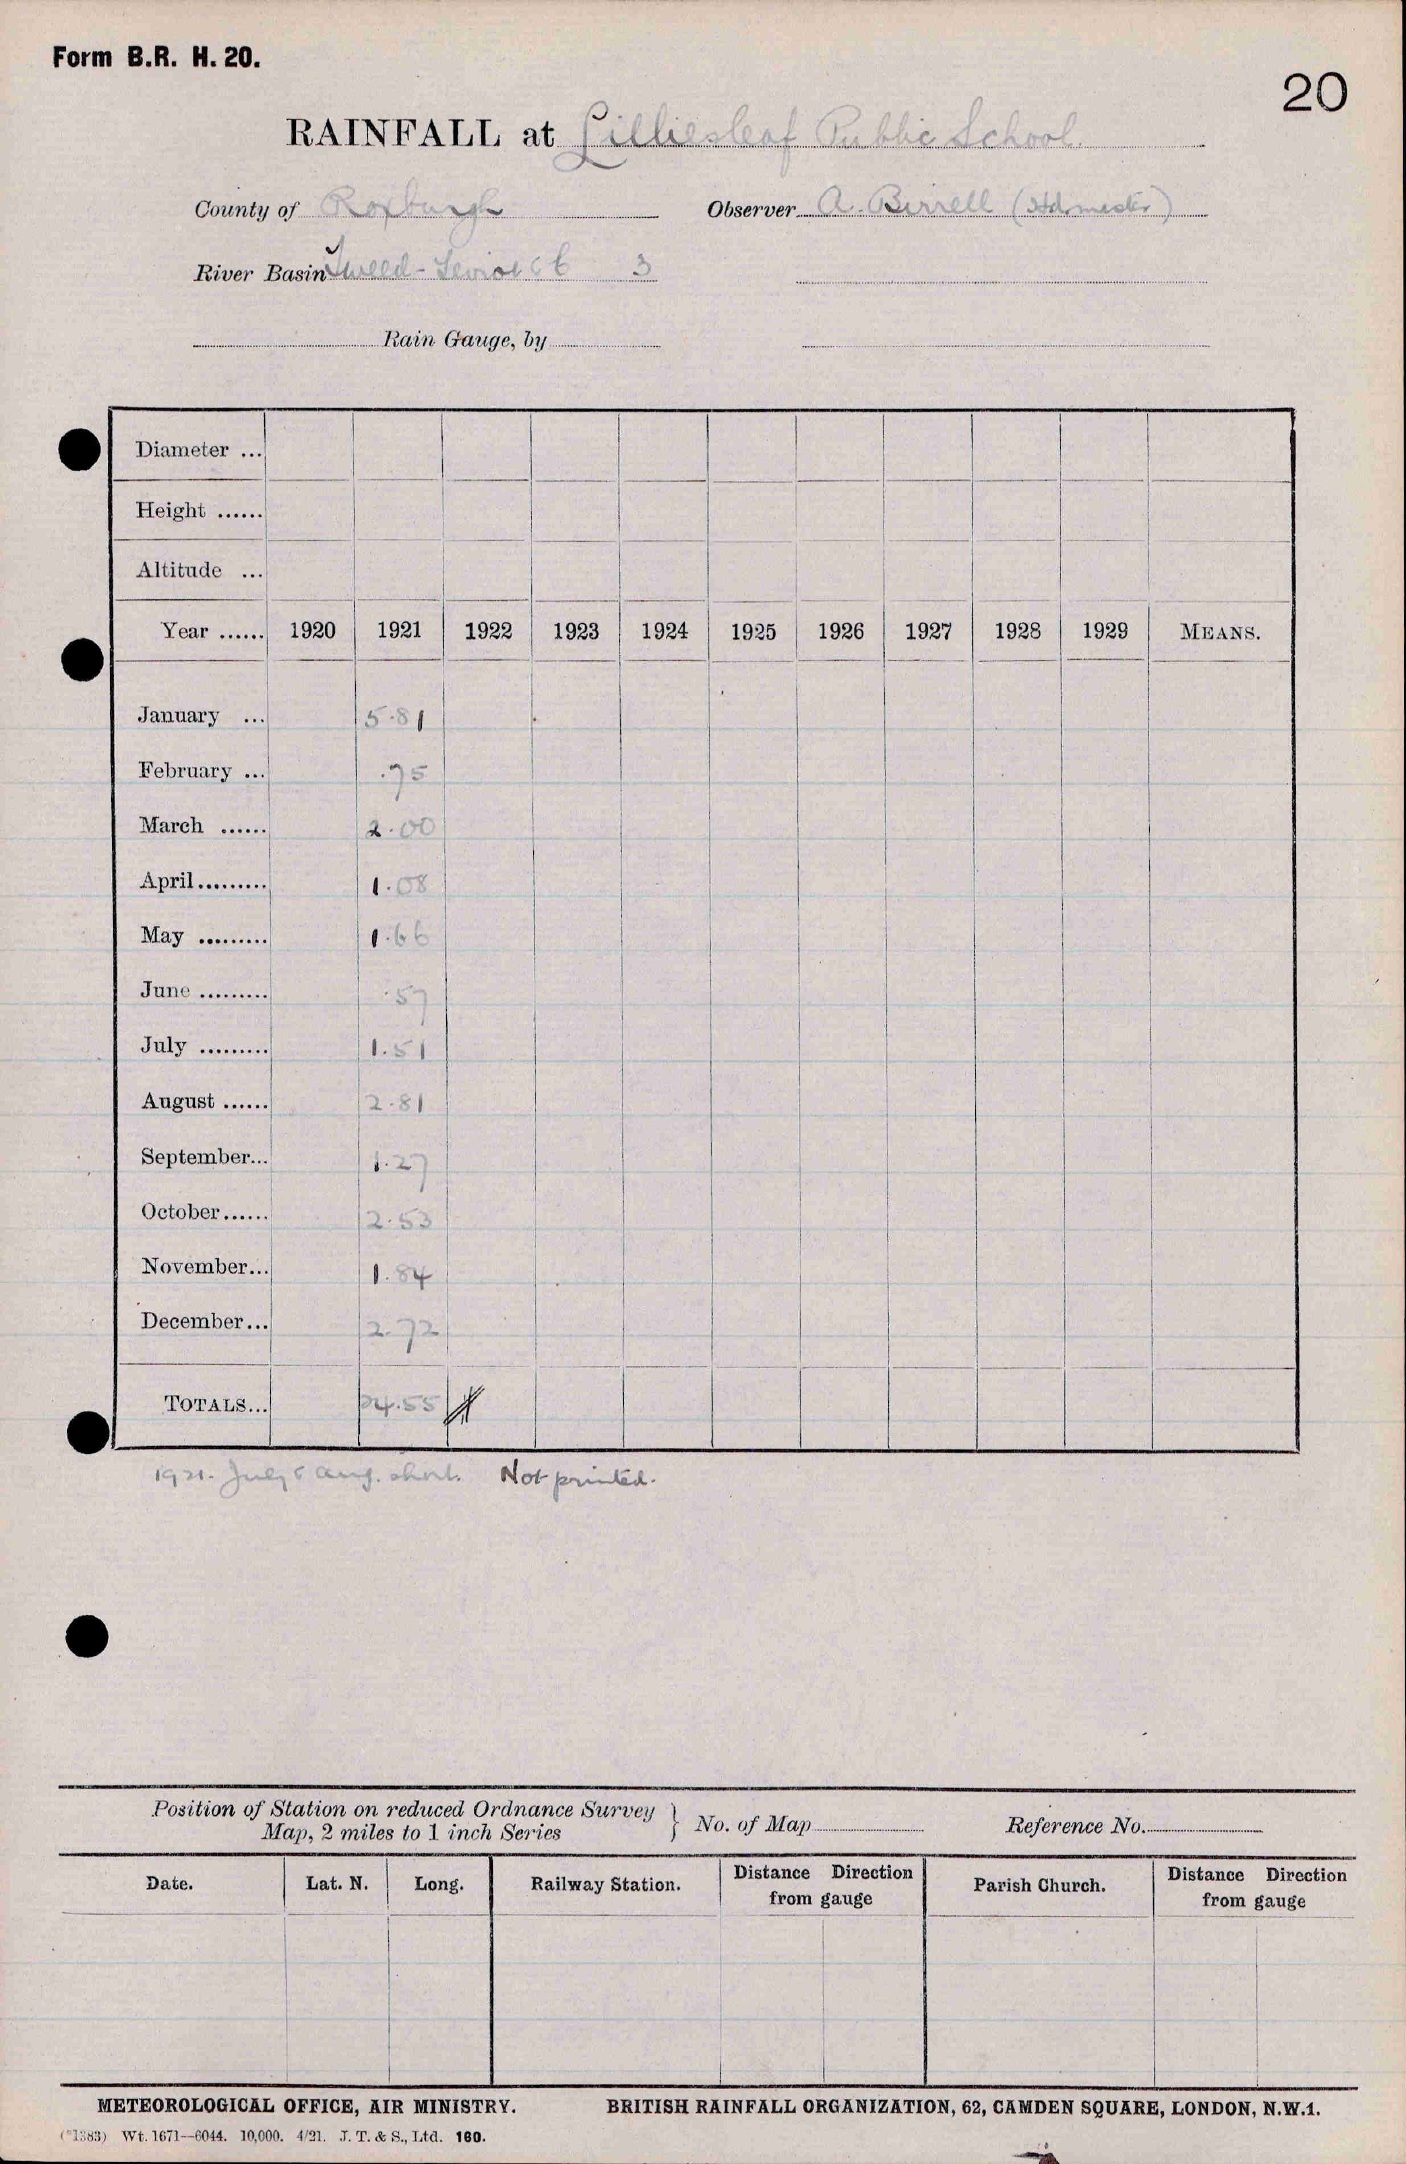 Form B.R. H. 20.
20
RAINFALL at Lilliesleaf Public School.
County of Roxburgh Observer A. Birrell (Hdmaster)
River Basin Tweed - Teviot 3
Rain Gauge, by
Diameter ...
Height ......
Altitude ...
Year ...... 1920 1921 1922 1923 1924 1925 1926 1927 1928 1929 MEANS.
January ... 5.81
February ... .75
March ...... 2.00
April ......... 1.08
May ......... 1.66
June ......... .57
July ......... 1.51
August ...... 2.81
September... 1.27
October...... 2.53
November... 1.84
December... 2.72
TOTALS... 24.55
1921. July & Aug. short. Not printed.
Position of Station on reduced Ordnance Survey
Map, 2 miles to 1 inch Series } No. of Map Reference No.
Date. Lat. N. Long. Railway Station. Distance Direction from gauge Parish Church. Distance Direction from gauge
METEOROLOGICAL OFFICE, AIR MINISTRY. BRITISH RAINFALL ORGANIZATION, 62, CAMDEN SQUARE, LONDON, N.W.1.
(*1383) Wt. 1671—6044. 10,000. 4/21. J. T. & S., Ltd. 160.